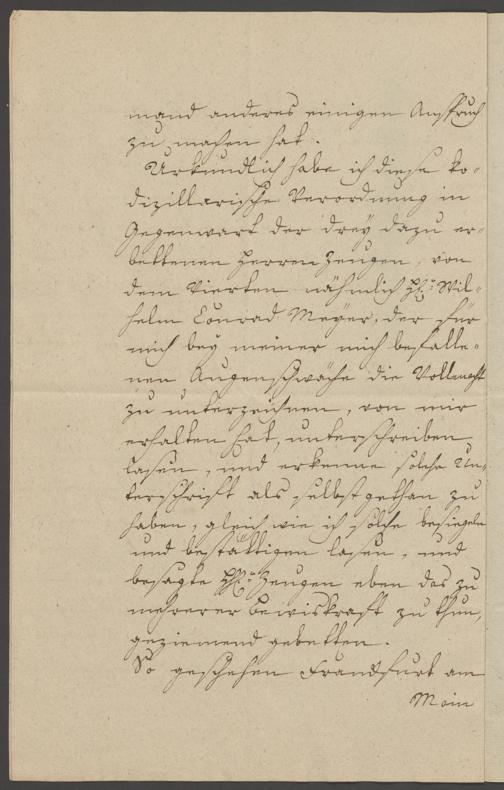 mand anderes einigen Anspruch
zu machen hat.
Urkundlich habe ich diese ko-
dizillarische Verordnung in
Gegenwart der drey dazu er-
bettenen Herren Zeugen, von
dem Vierten nähmlich H: Wil-
helm Conrad Meÿer, der für
mich beÿ meiner mich befalle-
nen Augenschwäche die Vollmacht
zu unterzeichnen, von mir
erhalten hat, unterschreiben
lasen, und erkenne solche Un-
terschrift als selbst gethan zu
haben, gleich wie ich solche besiegeln
und bestättigen lasen, und
besagte H: Zeugen eben das zu
mehrerer Beweiskraft zu thun,
geziemend gebetten.
So geschehen Franckfurt am
Main